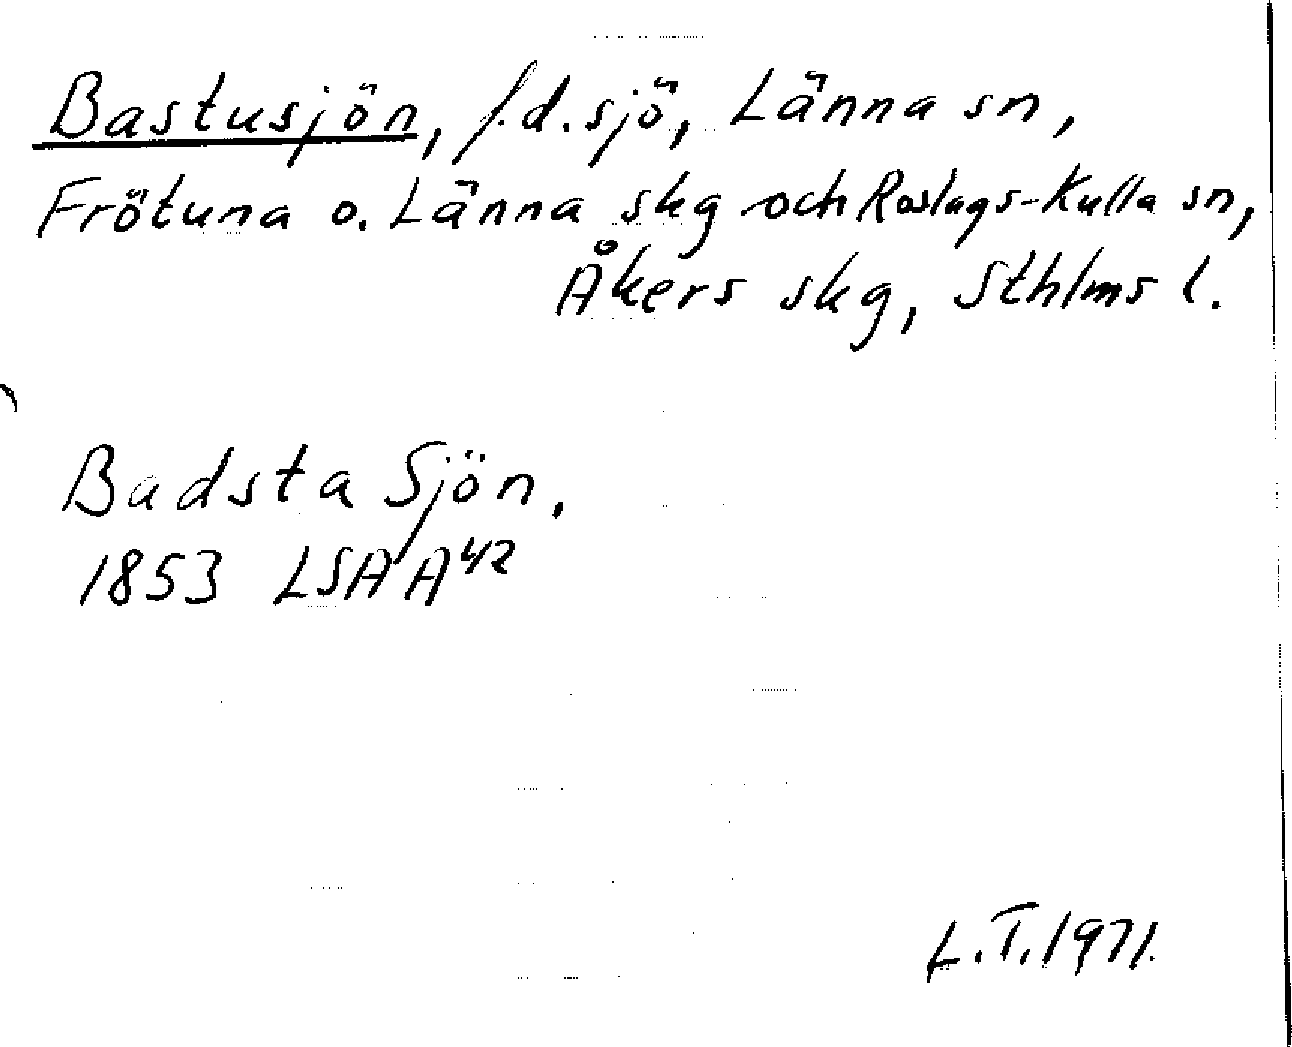 Bastusjön, f.d. sjö, Länna sn,
Frötuna o. Länna skg och Roslags-Kulla sn,
Åkers skg, Sthlms l.
Badsta Sjön.
1853 LSA A42
L.T. 1971.